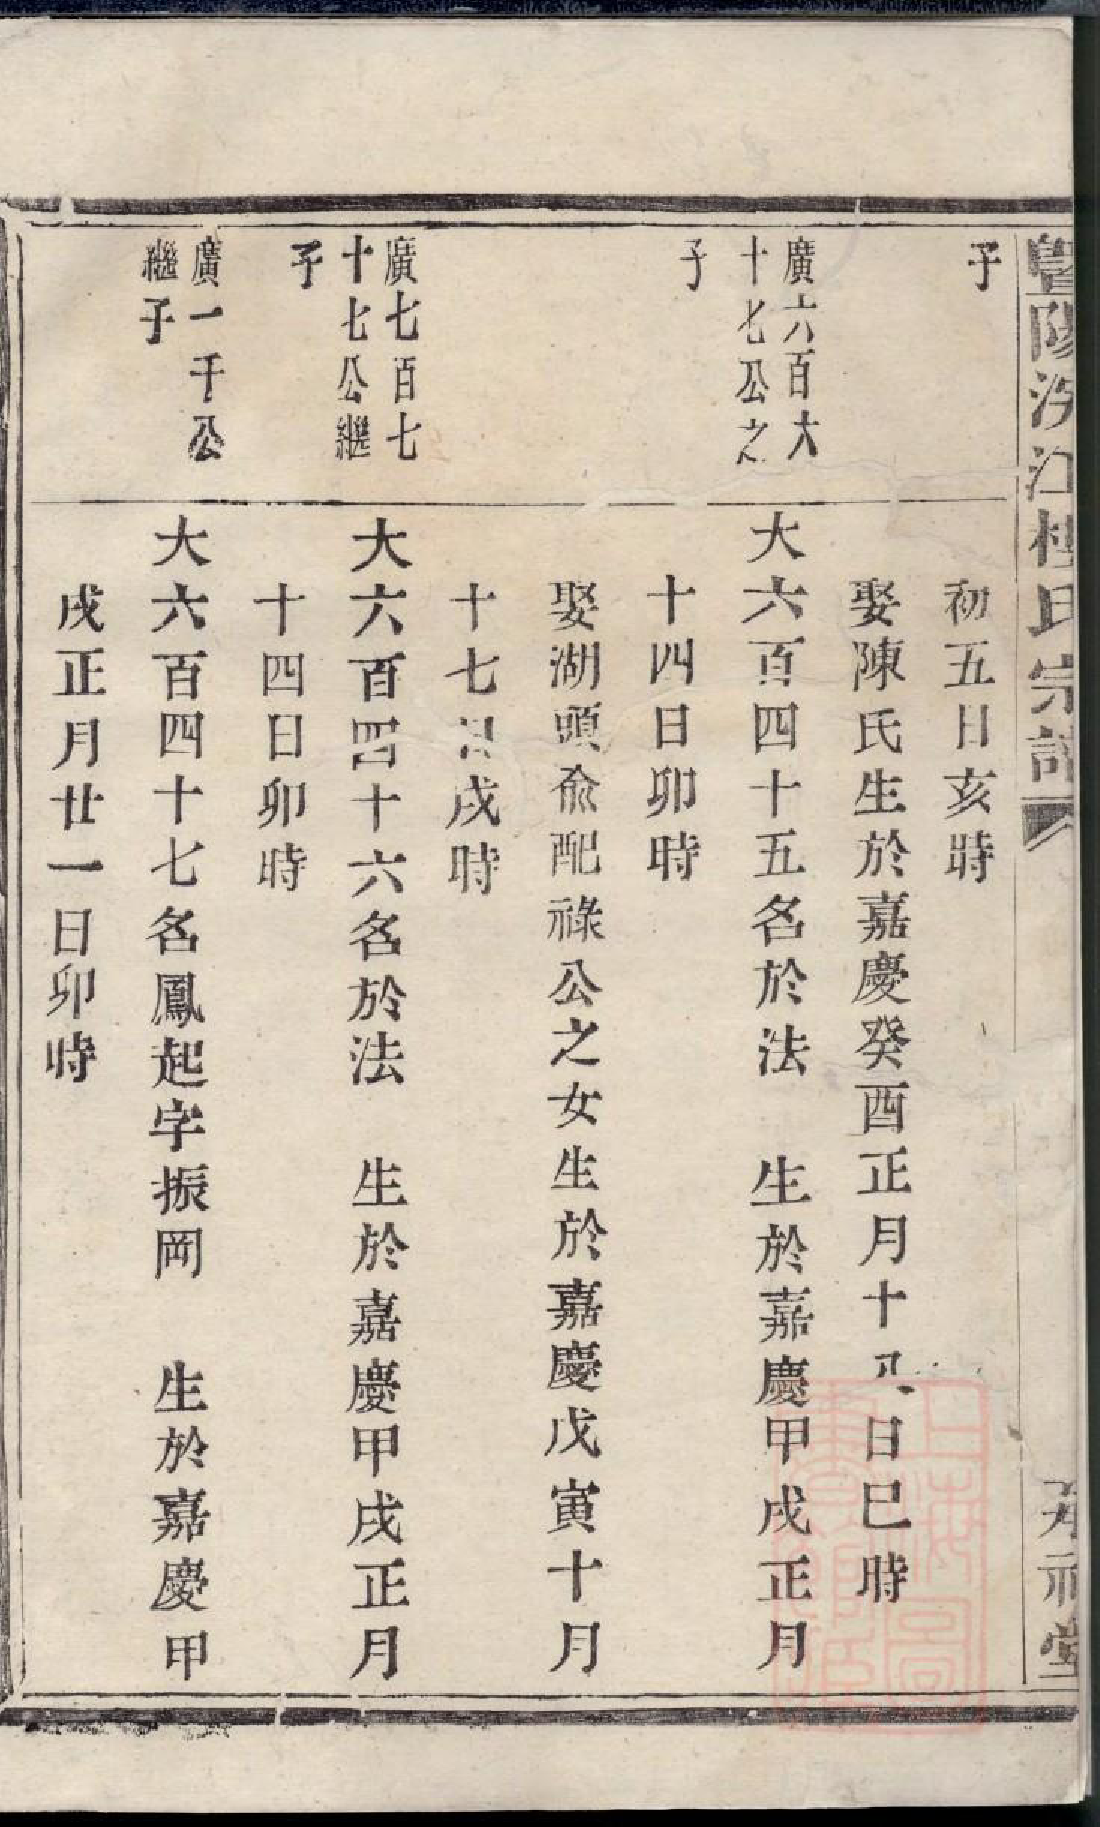 暨陽汐江樓氏宗譜
承裕堂
子
初五日亥時
娶陳氏生於嘉慶癸酉正月十八日巳時
廣六百六
十七公之
子
大六百四十五名於法　生於嘉慶甲戌正月
十四日卯時
娶湖頭俞配祿公之女生於嘉慶戊寅十月
十七日戌時
廣七百七
十七公繼
子
大六百四十六名於法　生於嘉慶甲戌正月
十四日卯時
廣一千公
繼子
大六百四十七名鳳起字振岡　生於嘉慶甲
戌正月廿一日卯時